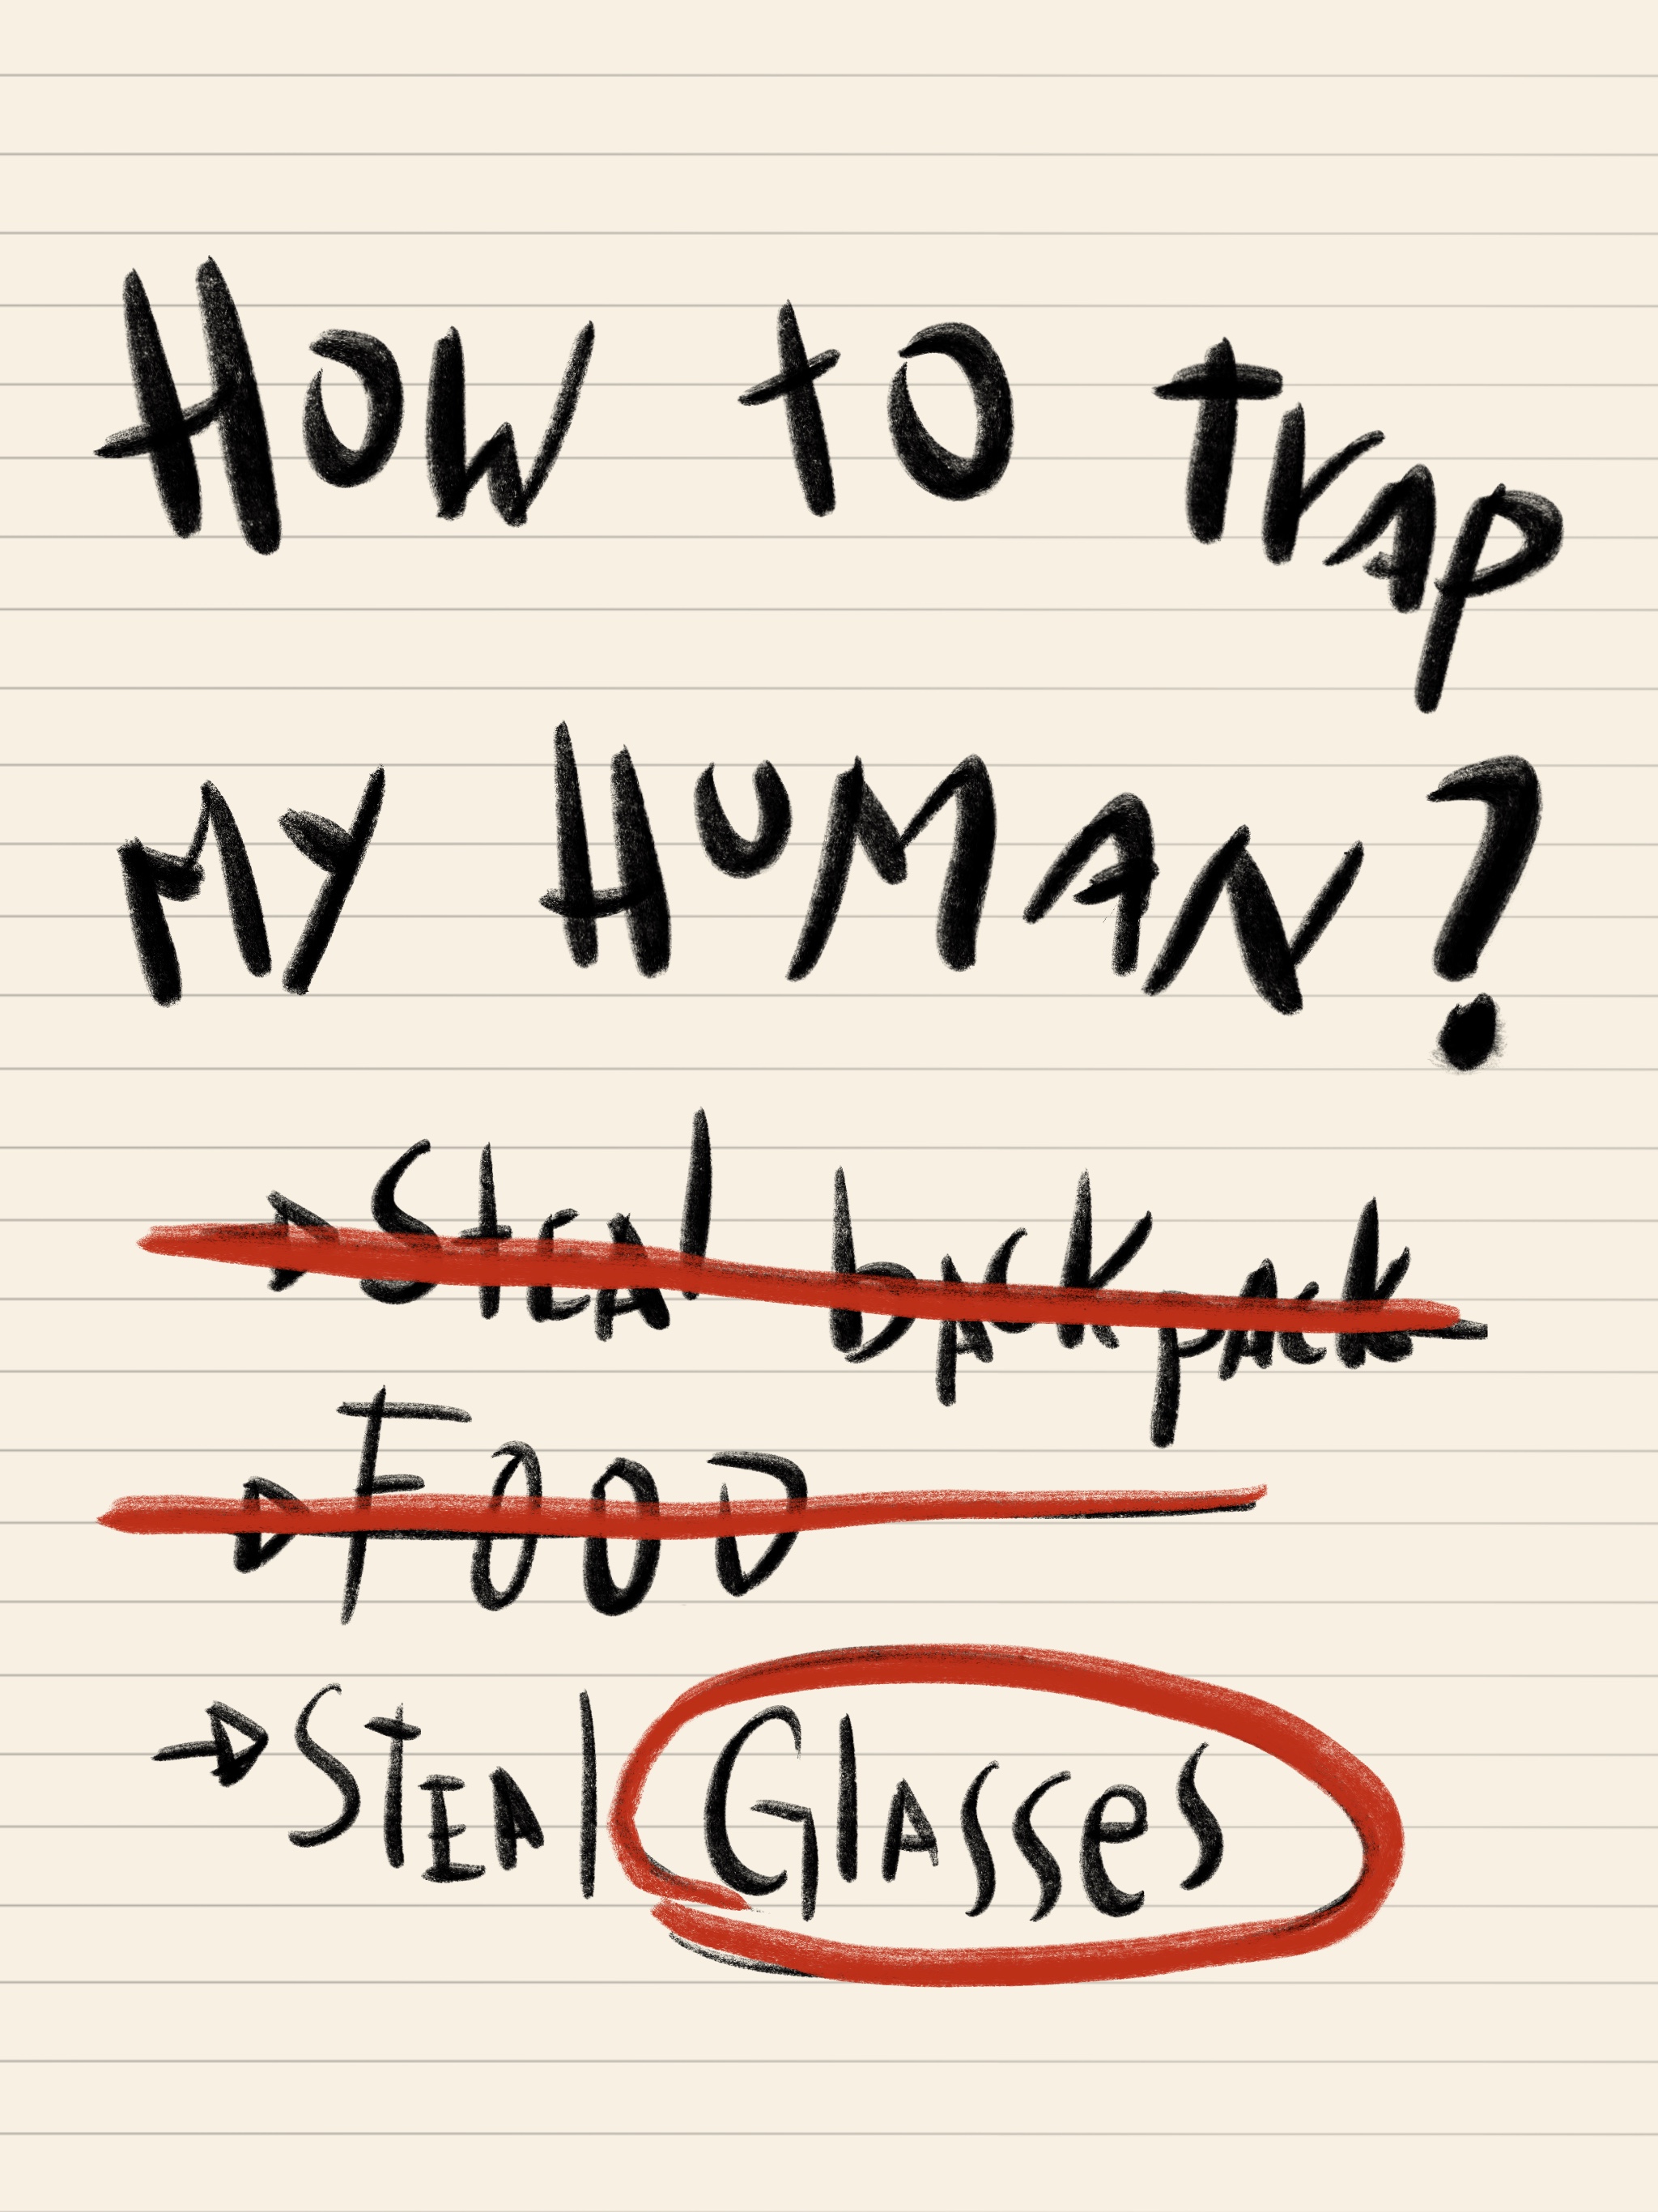 How to trap
My Human?
Steal backpack
Food
→ Steal Glasses